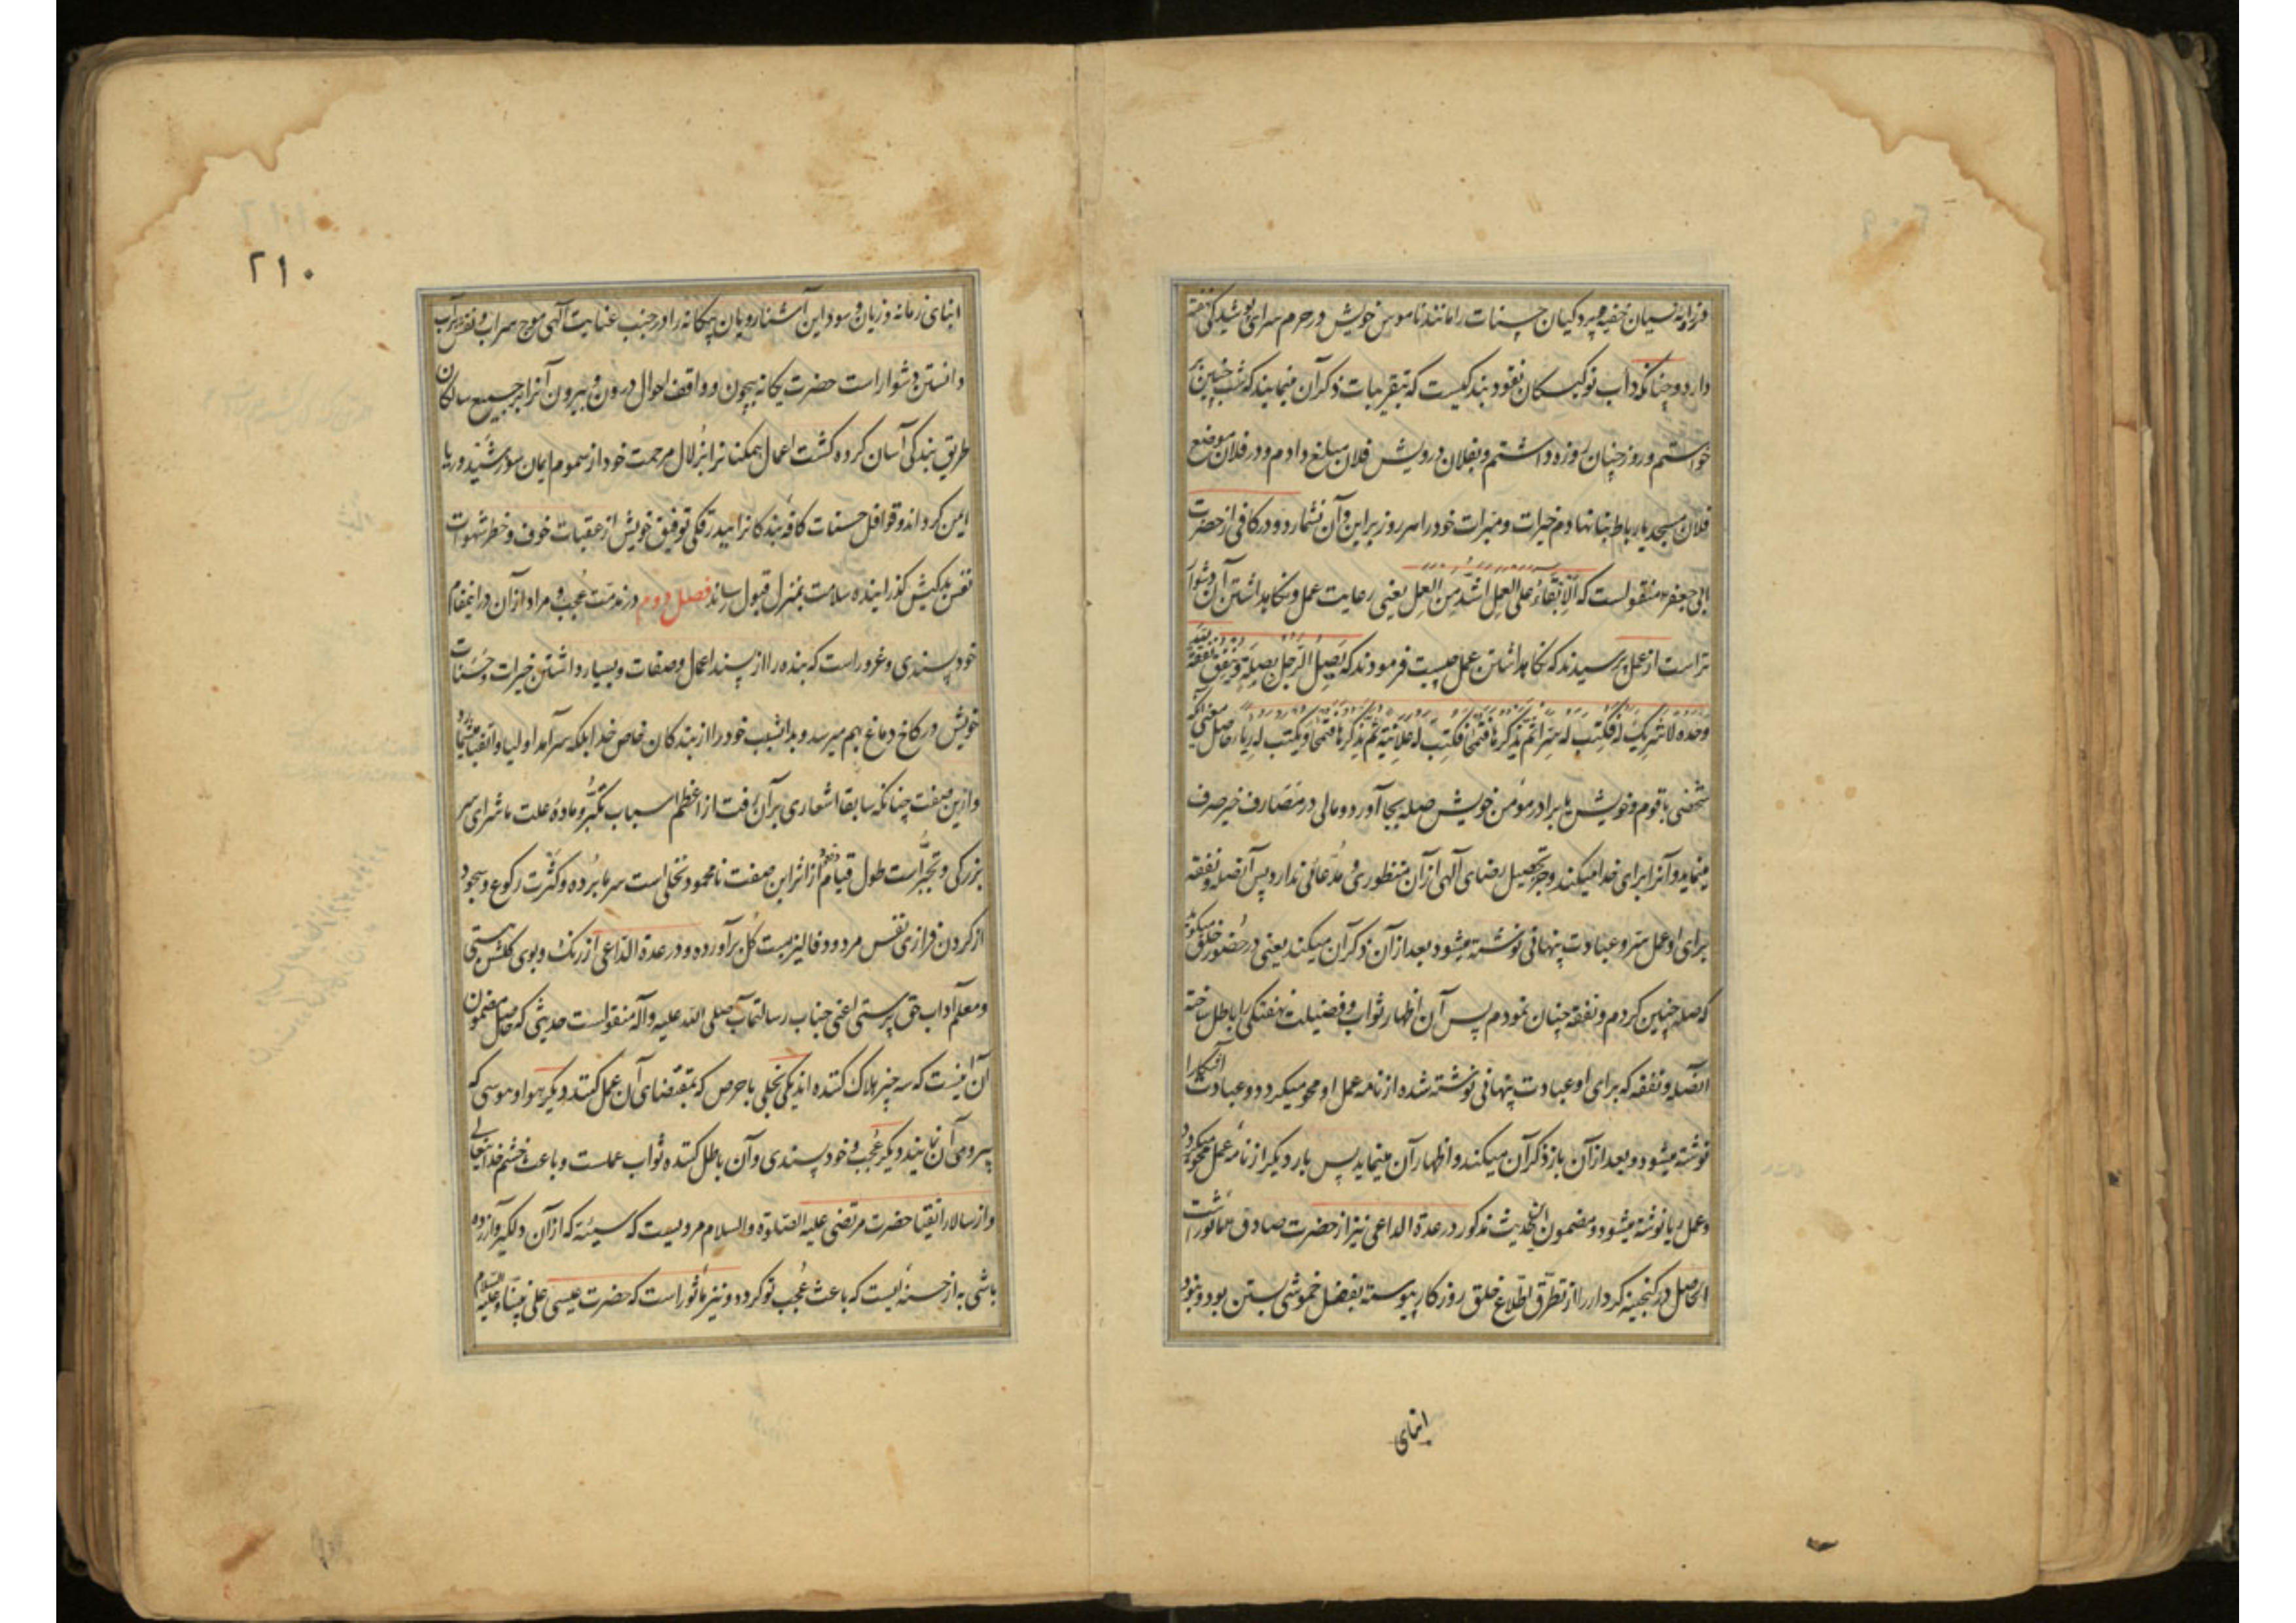 دارد و چنانکه داب نوکیسکان نقود بندکیست که بتقریبات ذکر آن مینمایند که شب چنین بر
خواستم و روز چنان روزه داشتم و بفلان درویش فلان مبلغ دادم و در فلان موضع
فلان مسجد یا رباط بنا نهادم خیرات و مبرات خود را هر روز بر این و آن نشمارد و در کافی از حضرت
ابی جعفر منقولست که اَلْاِبْقَاءُ عَلی العَمل اَشَدُّ مِنَ العَمل یعنی رعایت عمل و نکاهداشتن آن دشوار
تر است از عمل پرسیدند که نکاهداشتن عمل چیست فرمودند که یَصِلُ الرَّجُل بِصِلَةٍ وَ یُنْفِقُ نَفَقَةً
وَحْدَهُ لا شَرِیکَ لَهُ فَکُتِبَ لَهُ سِرّا ثُمَّ یَذْکُرُهَا فَتُمْحی فَتُکْتَبُ لَهُ عَلانِیَةً ثُمَّ یَذْکُرُهَا فَتُمْحی وَ تُکْتَبُ لَهُ رِیاءً حاصل معنی آنکه
شخصی با قوم و خویش یا برادر مؤمن خویش صله بجا آورد و مالی در مصارف خیر صرف
مینماید و آنرا برای خدا میکند و جز تحصیل رضای آلهی از آن منظوری و مدعائی ندارد پس آنصله و نفقه
برای او عمل سر و عبادت پنهانی نوشته میشود بعد از آن ذکر آن میکند یعنی در حضور خلق میکوید
که صله چنین کردم و نفقه چنان نمودم پس آن اظهار ثواب و فضیلت نهفتکی را باطل ساخته
آنصله و نفقه که برای او عبادت پنهانی نوشته شده از نامه عمل او محو میکردد و عبادت آشکارا
نوشته میشود و بعد از آن باز ذکر آن میکند و اظهار آن مینماید پس بار دیکر از نامه عمل محو میکردد
و عمل ریا نوشته میشود و مضمون اینحدیث مذکور در عدة الداعی نیز از حضرت صادق ماثور است
الحاصل در کنجینه کردار را از تطرق اطلاع خلق روزکار پیوسته بقفل خموشی بستن بود و نبود
ابنای
۲۱۰
ابنای زمانه و زیان و سود این آشنا رویان بیکانه را در جنب عنایت آلهی موج سراب و نقش بر آب
دانستن دشوار است حضرت یکانه بیچون و واقف احوال درون و بیرون آنرا بر جمیع سالکان
طریق بندکی آسان کرده کشت اعمال همکنانرا بزلال مرحمت خود از سموم ایمان سوز شید و ریا
ایمن کرداند و قوافل حسنات کافه بندکانرا ببدرقکی توفیق خویش از عقبات خوف و خطر شهوات
نفس بدکیش کذرانیده سلامت بمنزل قبول رساند فصل دوم در مذمت عُجب و مراد از آن در اینمقام
خود پسندی و غرور است که بنده را از پسند اعمال و صفات و بسیار داشتن خیرات و حسنات
خویش در کاخ دماغ بهم میرسد و بدانسبب خود را از بندکان خاص خدا بلکه سرآمد اولیا و اتقیا میشمارد
و از این صفت چنانکه سابقا اشعاری بر آن رفت از اعظم اسباب تکبُّر و ماده علت ماشرای سر
بزرکی و تجبُّر است طول قیام از اثر این صفت نامحمود نخلی است سرما برده و کثرت رکوع و سجود
از کردن فرازی نفس مردود فالیزیست کُل بر آورده و در عدة الداعی از رنک و بوی کلشن هستی
و معلم آداب حق پرستی اعنی جناب رسالتمآب صلی الله علیه و آله منقولست حدیثی که حاصل مضمون
آن اینست که سه چیز هلاک کننده اند یکی بخلی با حرص که بمقتضای آن عمل کنند دیکر هوا و هوسی که
پیروی آن نمایند دیکر عُجب و خود پسندی و آن باطل کننده ثواب عملست و باعث خشم خدایتعالی
و از سالار اتقیا حضرت مرتضی علیه الصلوة والسلام مرویست که سیئه که از آن دلکیر و آزرده
باشی به از حسنه ایست که باعث عُجب تو کردد و نیز ماثور است که حضرت عیسی علی نبینا و علیه السلام